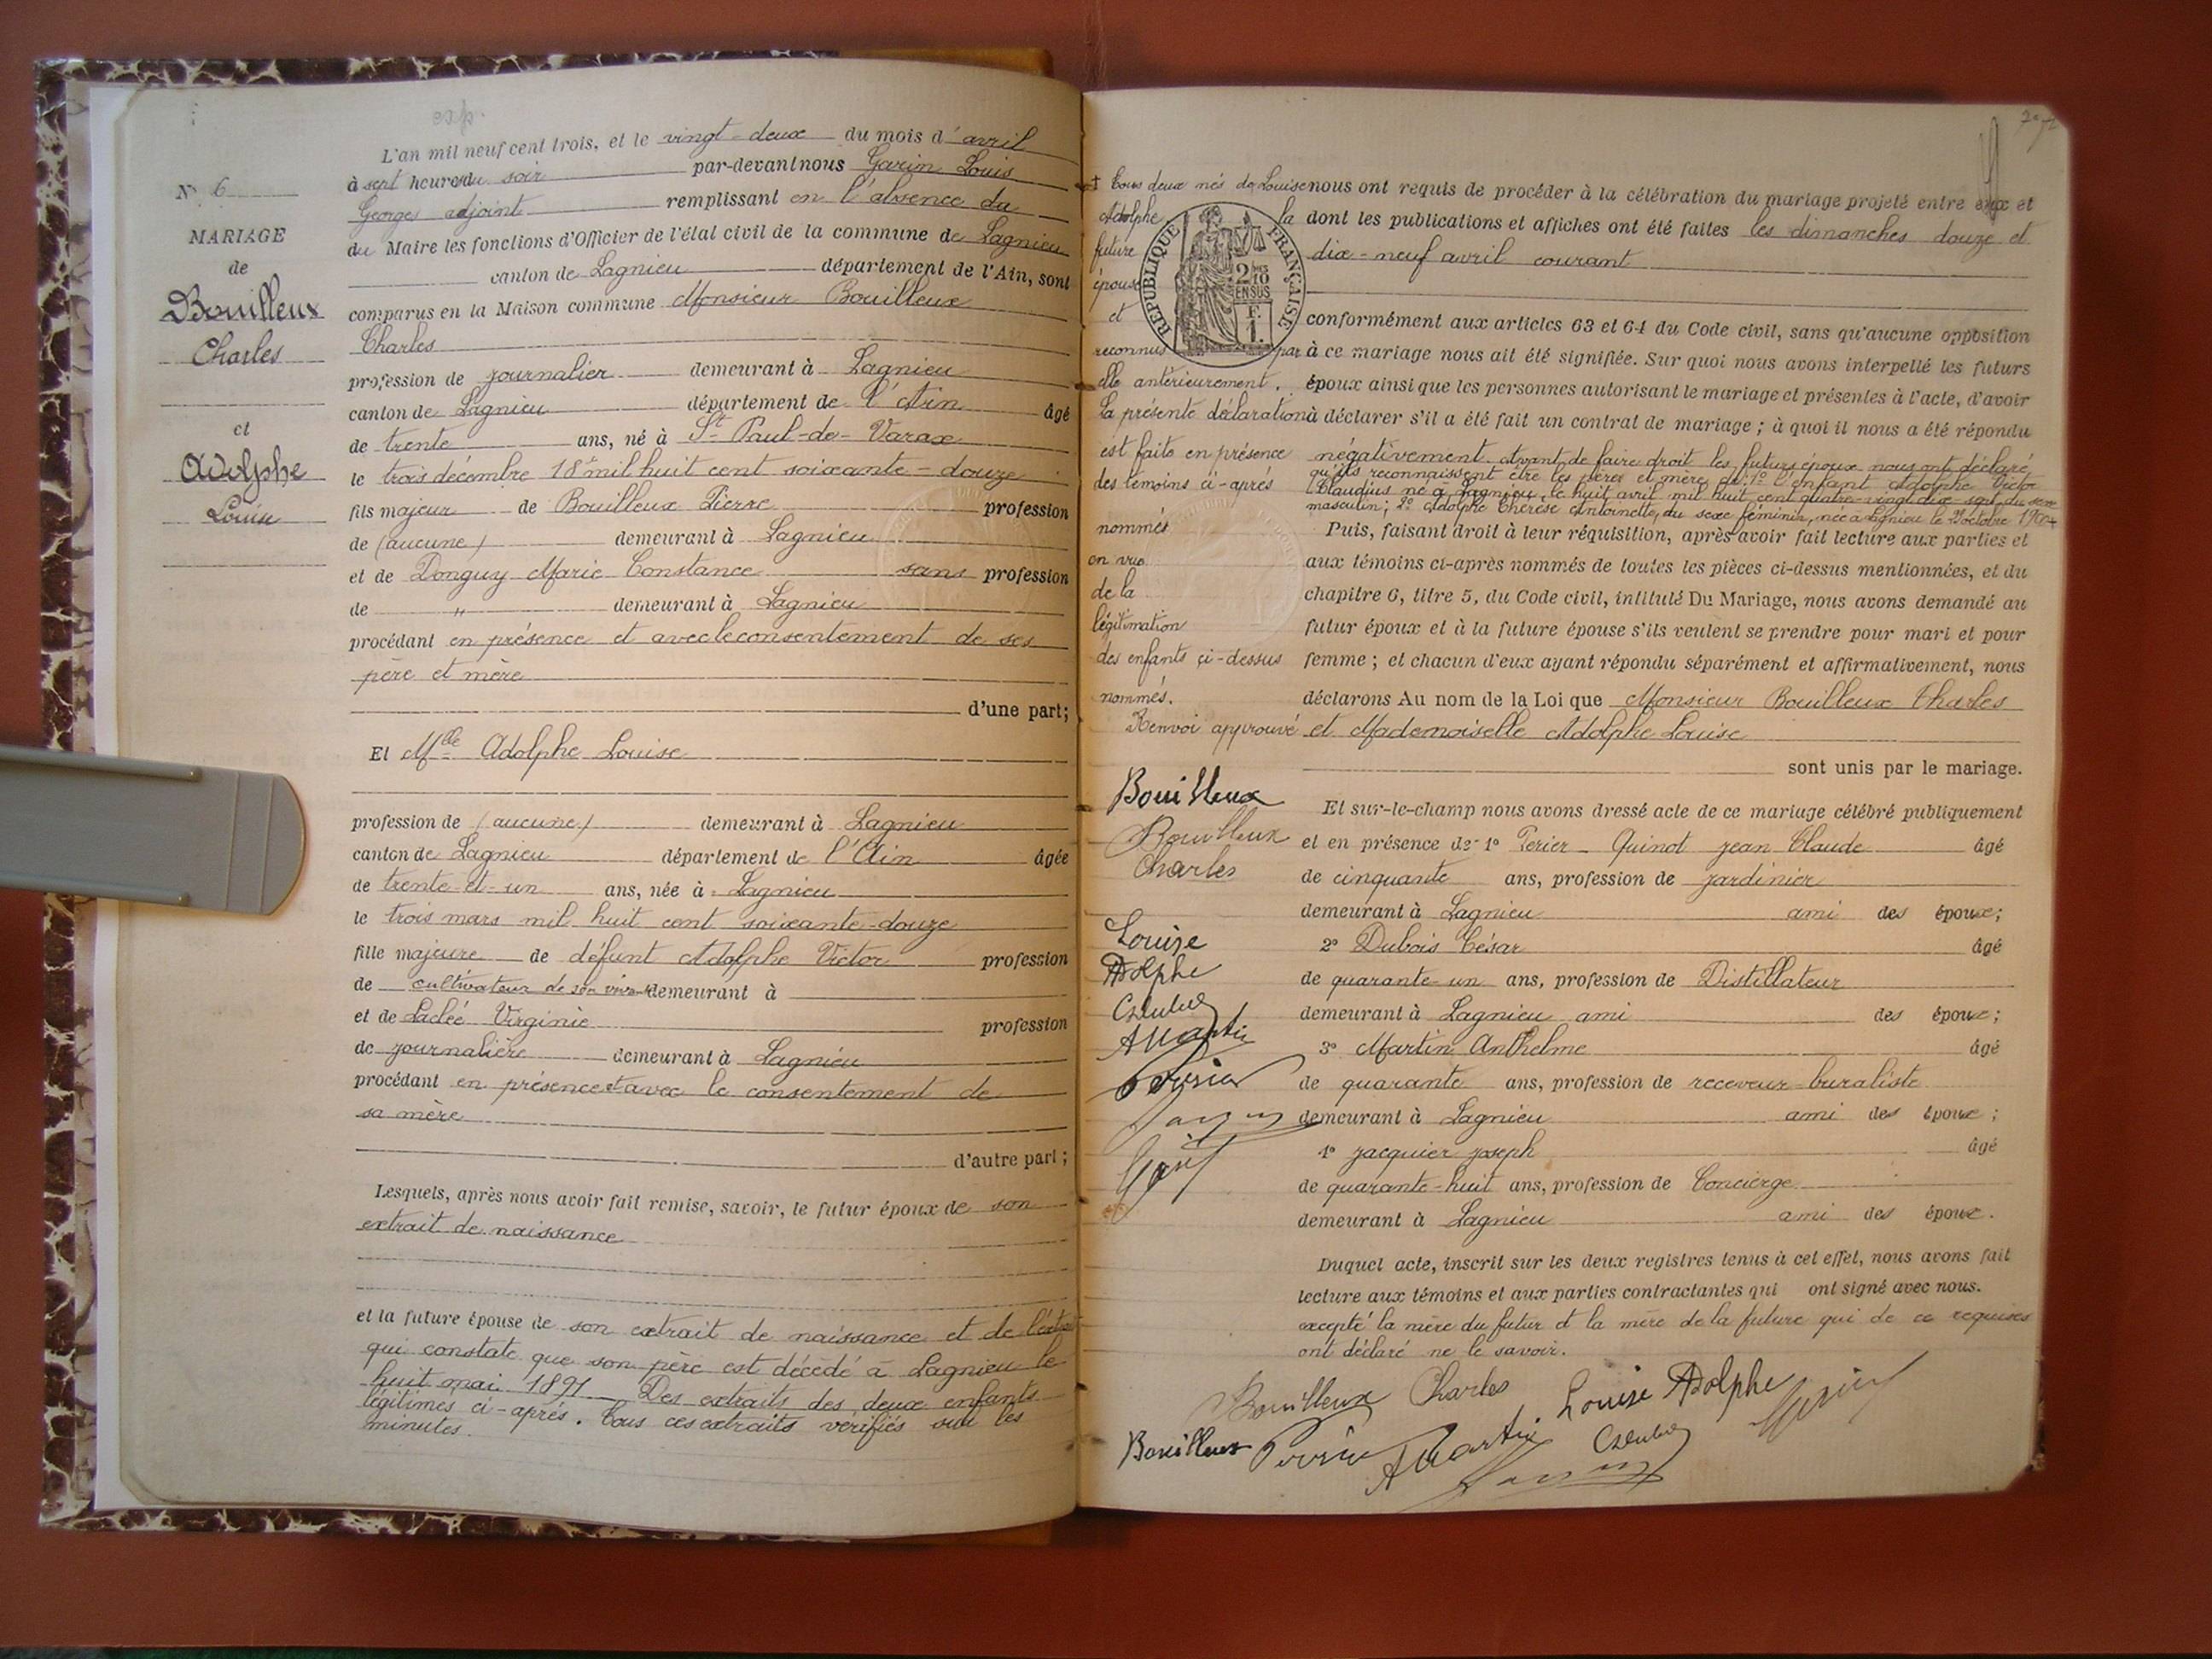 N° 6
MARIAGE
de
Bouilleux
Charles
et
Adolphe
Louise
L'an mil neuf cent trois, et le vingt-deux du mois d'avril
à sept heures du soir par-devant nous Garin Louis
Georges adjoint remplissant en l'absence du
du Maire les fonctions d'Officier de l'état civil de la commune de Lagnieu
canton de Lagnieu département de l'Ain, sont
comparus en la Maison commune Monsieur Bouilleux
Charles
profession de journalier demeurant à Lagnieu
canton de Lagnieu département de l'Ain âgé
de trente ans, né à St Paul-de-Varax
le trois décembre 18 mil huit cent soixante-douze
fils majeur de Bouilleux Pierre profession
de (aucune) demeurant à Lagnieu
et de Donguy Marie Constance sans profession
de " demeurant à Lagnieu
procédant en présence et avec le consentement de ses
père et mère
d'une part;
Et Mlle Adolphe Louise
profession de (aucune) demeurant à Lagnieu
canton de Lagnieu département de l'Ain âgée
de trente-et-un ans, née à Lagnieu
le trois mars mil huit cent soixante-douze
fille majeure de défunt Adolphe Victor profession
de cultivateur de son vivant demeurant à
et de Virginie profession
de journalière demeurant à Lagnieu
procédant en présence et avec le consentement de
sa mère
d'autre part;
Lesquels, après nous avoir fait remise, savoir, le futur époux de son
extrait de naissance
et la future épouse de son extrait de naissance et de
qui constate que son père est décédé à Lagnieu le
huit mai 1891 Des extraits des deux enfants
légitimés ci-après. Tous ces extraits vérifiés sur les
minutes.
Tous deux nés de Louise
Adolphe la
future
épouse
et
reconnus par
elle antérieurement.
La présente déclaration
est faite en présence
des témoins ci-après
nommés
en vue
de la
légitimation
des enfants ci-dessus
nommés.
Renvoi approuvé
Bouilleux
Bouilleux
Charles
Louise
Adolphe
CDubois
AMartin
Perier
RÉPUBLIQUE FRANÇAISE
nous ont requis de procéder à la célébration du mariage projeté entre eux et
dont les publications et affiches ont été faites les dimanches douze et
dix-neuf avril courant
conformément aux articles 63 et 64 du Code civil, sans qu'aucune opposition
à ce mariage nous ait été signifiée. Sur quoi nous avons interpellé les futurs
époux ainsi que les personnes autorisant le mariage et présentes à l'acte, d'avoir
à déclarer s'il a été fait un contrat de mariage; à quoi il nous a été répondu
négativement. Avant de faire droit les futurs époux nous ont déclaré
qu'ils reconnaissent être les pères et mères de: 1° l'enfant Adolphe Victor
Claudius né à Lagnieu le huit avril mil huit cent quatre-vingt-dix-sept, du sexe
masculin; 2° Adolphe Thérèse Antoinette, du sexe féminin, née à Lagnieu le octobre
Puis, faisant droit à leur réquisition, après avoir fait lecture aux parties et
aux témoins ci-après nommés de toutes les pièces ci-dessus mentionnées, et du
chapitre 6, titre 5, du Code civil, intitulé Du Mariage, nous avons demandé au
futur époux et à la future épouse s'ils veulent se prendre pour mari et pour
femme; et chacun d'eux ayant répondu séparément et affirmativement, nous
déclarons Au nom de la Loi que Monsieur Bouilleux Charles
et Mademoiselle Adolphe Louise
sont unis par le mariage.
Et sur-le-champ nous avons dressé acte de ce mariage célébré publiquement
et en présence de 1° Perier-Quinot Jean Claude âgé
de cinquante ans, profession de jardinier
demeurant à Lagnieu ami des époux;
2° Dubois César âgé
de quarante-un ans, profession de Distillateur
demeurant à Lagnieu ami des époux;
3° Martin Anthelme âgé
de quarante ans, profession de receveur-buraliste
demeurant à Lagnieu ami des époux;
4° Jacquier Joseph âgé
de quarante-huit ans, profession de Concierge
demeurant à Lagnieu ami des époux.
Duquel acte, inscrit sur les deux registres tenus à cet effet, nous avons fait
lecture aux témoins et aux parties contractantes qui ont signé avec nous.
excepté la mère du futur et la mère de la future qui de ce requises
ont déclaré ne le savoir.
Bouilleux Charles Louise Adolphe Garin
Bouilleux Perier AMartin CDubois